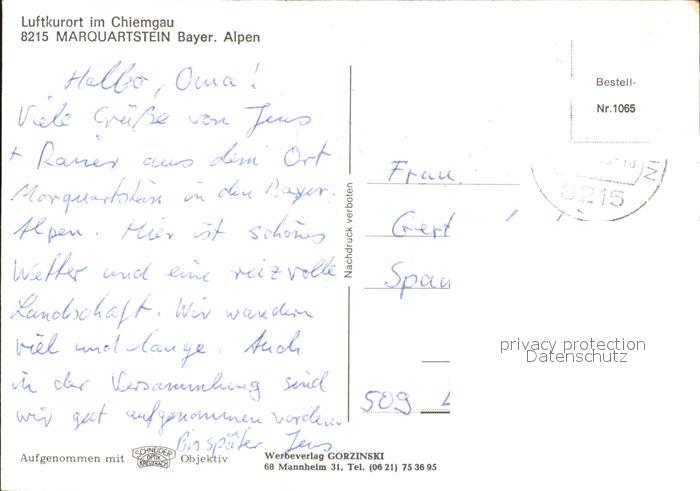 Luftkurort im Chiemgau
8215 MARQUARTSTEIN Bayer. Alpen
Hallo, Oma!
Viele Grüße von Jens
+ Rainer aus dem Ort
Marquartstein in den Bayer.
Alpen. Hier ist schönes
Wetter und eine reizvolle
Landschaft. Wir wandern
viel und lange. Auch
in der Versammlung sind
wir gut aufgenommen worden.
Bis später Jens
Aufgenommen mit SCHNEIDER OPTIK KREUZNACH Objektiv
Werbeverlag GORZINSKI
68 Mannheim 31, Tel. (06 21) 75 36 95
Nachdruck verboten
Bestell-
Nr. 1065
8215
Frau
Gert
Span
509
privacy protection
Datenschutz